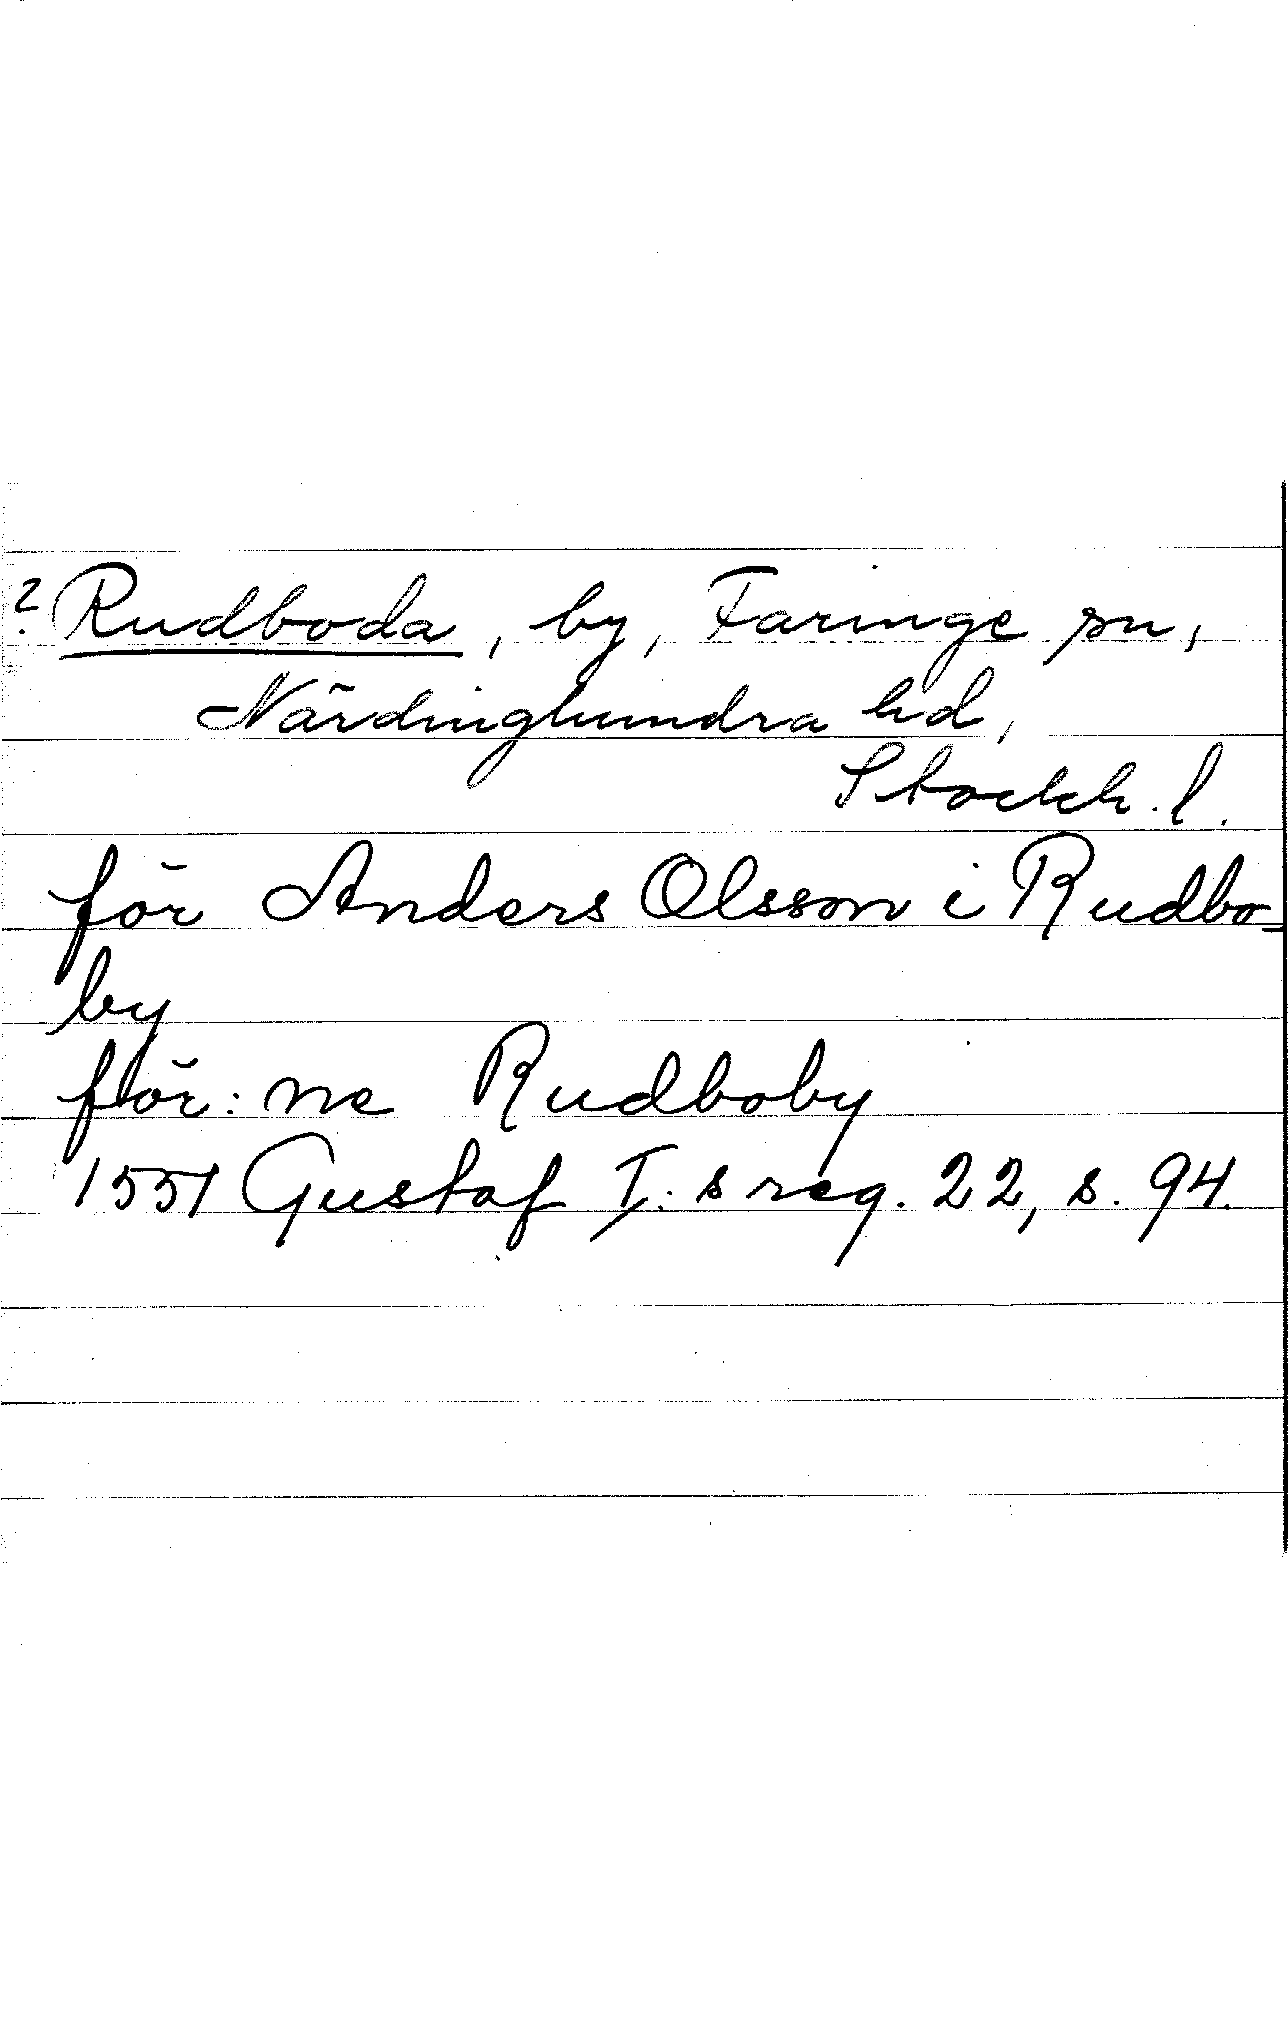 ? Rudboda, by, Faringe sn,
Närdinghundra hd,
Stockh. l.
för Anders Olsson i Rudbo-
by
för: ne Rudboby
1551 Gustaf I: s reg. 22, s. 94.